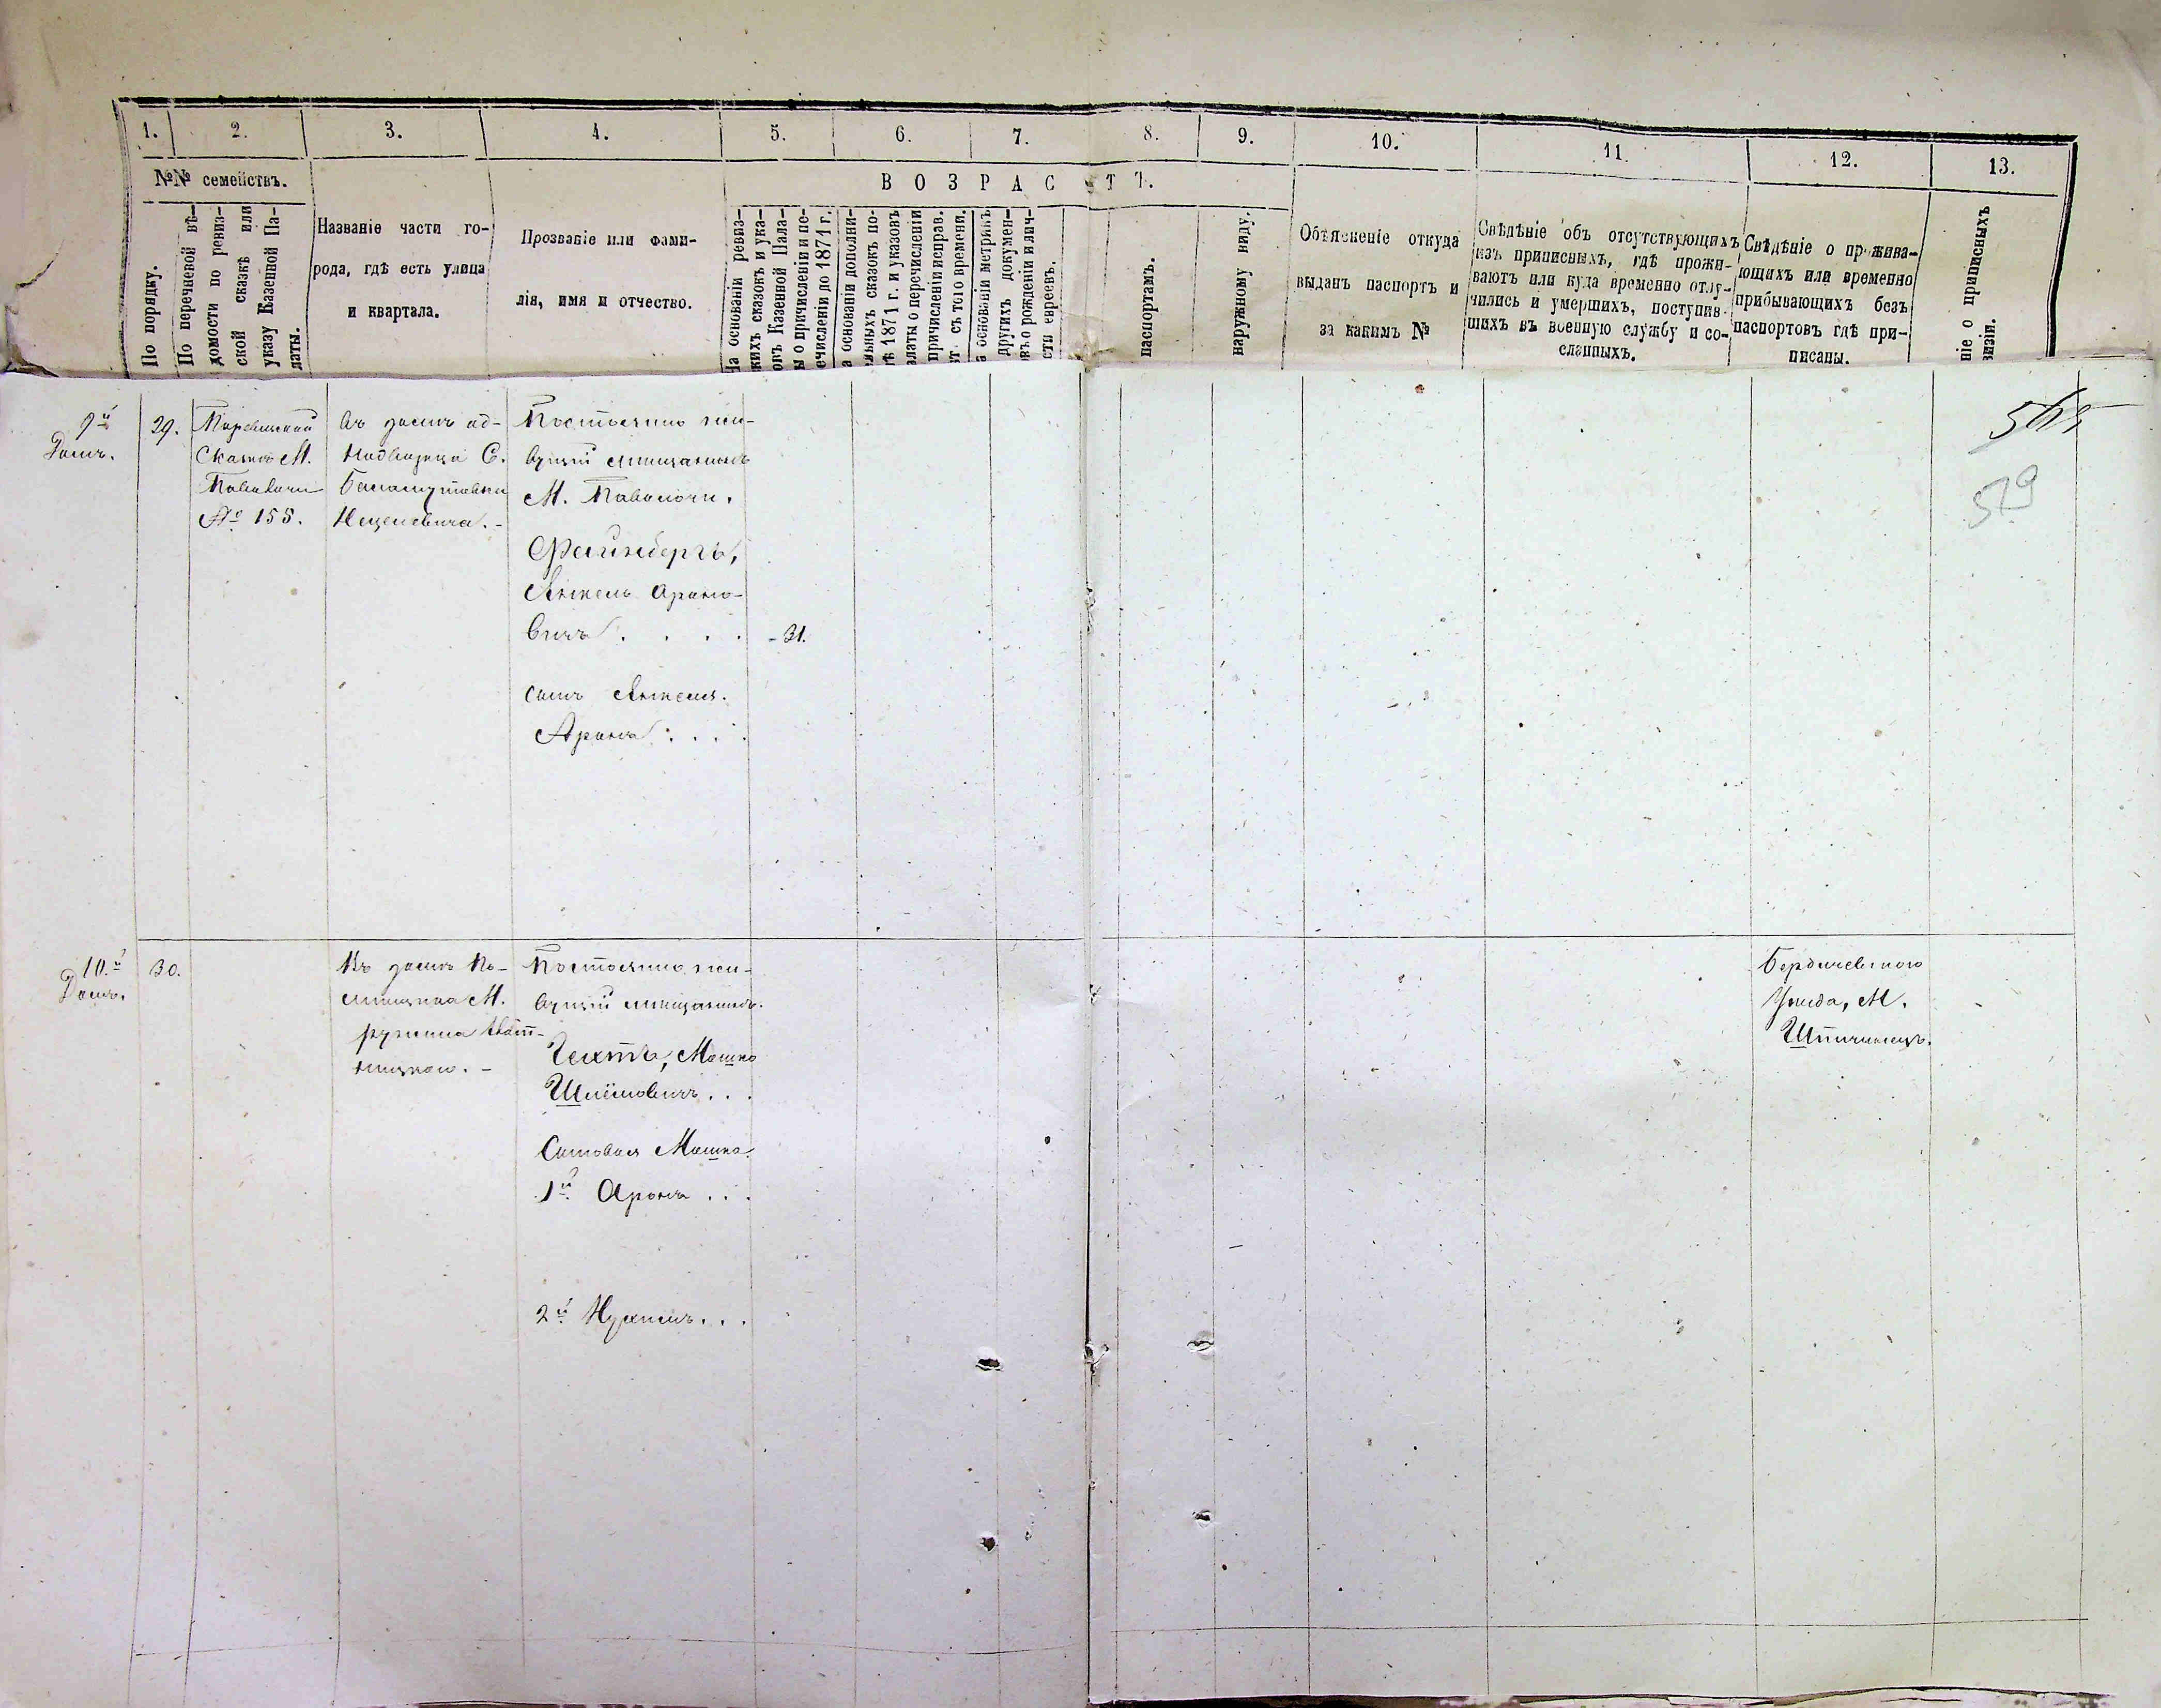 1. 2. 3. 4. 5. 6. 7. 8. 9. 10. 11. 12. 13.
№№ семействъ.
ВОЗРАСТЪ.
По порядку.
По перечневой вѣ-
домости по ревиз-
ской сказкѣ или
указу Казенной Па-
латы.
Названіе части го-
рода, гдѣ есть улица
и квартала.
Прозваніе или фами-
лія, имя и отчество.
На основаніи ревиз-
скихъ сказокъ и ука-
зовъ Казенной Пала-
ты о причисленіи и пе-
речисленіи до 1871 г.
а основаніи дополни-
ельныхъ сказокъ по-
1871 г. и указовъ
алаты о перечисленіи
причисленіи исправ.
съ того времени.
а основаніи метрикъ
другихъ докумен-
овъ о рожденіи и лич-
сти евреевъ.
паспортамъ.
наружному виду.
Объясненіе откуда
выданъ паспортъ и
за какимъ №
Свѣдѣніе объ отсутствующихъ
изъ приписныхъ, гдѣ прожи-
ваютъ или куда временно отлу-
чились и умершихъ, поступив-
шихъ въ военную службу и со-
сланныхъ.
Свѣдѣніе о прожива-
ющихъ или временно
прибывающихъ безъ
паспортовъ гдѣ при-
писаны.
ніе о приписныхъ
визіи.
9й
Домъ.
29.
Сказкѣ М.
Паволочи
№ 155.
Въ домѣ од-
С.
Постоянно жи-
вущій мѣщанинъ
М. Паволочи.
Файнбергъ,
Янкель Ароно-
вичъ . . . .
31.
сынъ Янкеля.
Аронъ . . . .
579
10.й
Домъ.
30.
Въ домѣ По-
мѣщика М.
Ружина
Постоянно жи-
вущій мѣщанинъ.
Гехтъ, Мошко
Шлёмовичъ . . .
Сыновья Мошка
1й Аронъ . . .
2й Нухимъ . . .
Бердичевскаго
Уѣзда, М.